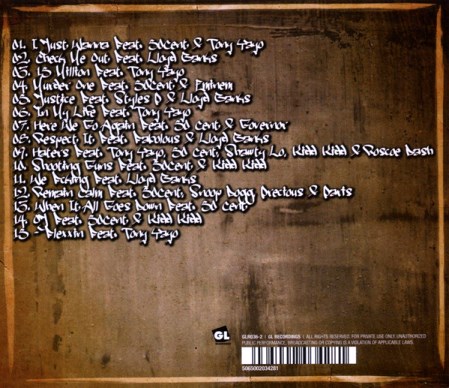 01. I Just Wanna Feat. 50Cent & Tony Yayo
02. Check Me Out Feat. Lloyd Banks
03. 15 Million Feat. Tony Yayo
04. Murder One Feat. 50Cent & Eminem
05. Justice Feat. Styles P & Lloyd Banks
06. In My Life Feat. Tony Yayo
07. Here We Go Again Feat. 50 Cent & Governor
08. Respect It Feat. Fabolous & Lloyd Banks
09. Haters Feat. Tony Yayo, 50 Cent, Shawty Lo, Kidd Kidd & Roscoe Dash
10. Shooting Guns Feat. 50Cent & Kidd Kidd
11. We Feat. Lloyd Banks
12. Remain Calm Feat. 50cent, Snoop Dogg, Precious &
13. When It All Goes Down Feat. 50 Cent
14. OJ Feat. 50Cent & Kidd Kidd
15 - Feat. Tony Yayo
GL
GLR036-2 | GL RECORDINGS | ALL RIGHTS RESERVED. FOR PRIVATE USE ONLY. UNAUTHORIZED
PUBLIC PERFORMANCE, BROADCASTING OR COPYING IS A VIOLATION OF APPLICABLE LAWS.
5065002034281